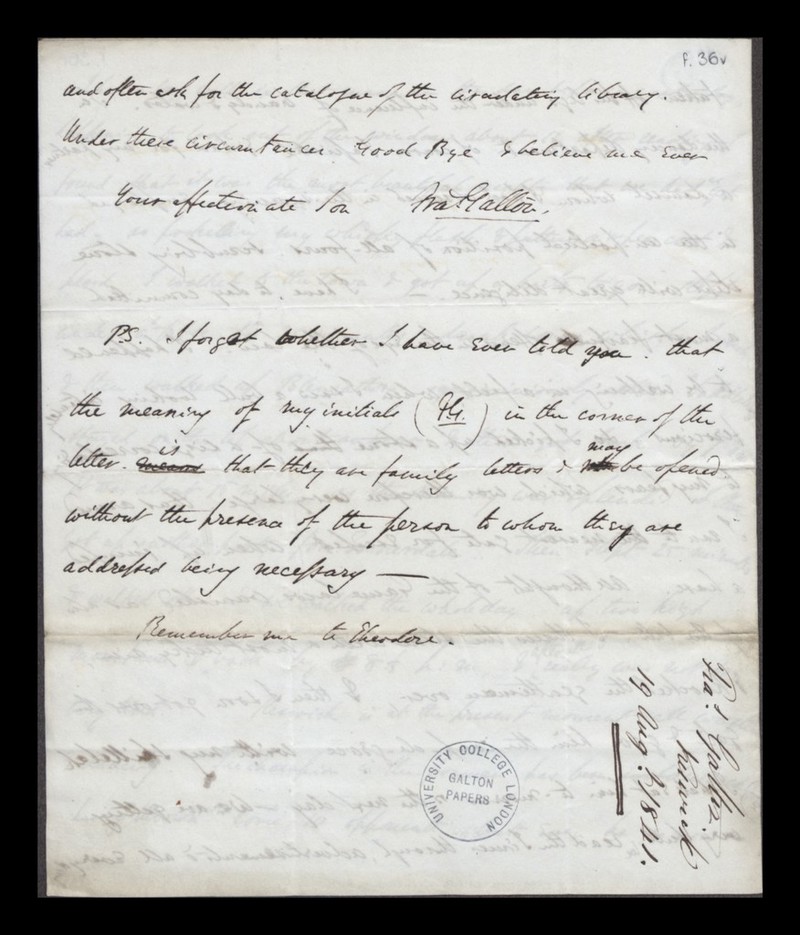 f. 36v
and often ask for the catalogue of the circulating library.
Under these circumstances Good Bye & believe me Ever
Your affectionate Son Fra.s Galton.
P.S. I forget whether I have Ever told you. that
the meaning of my initials (FG.) in the corner of the
letter. means is that they are family letters & may be opened.
without the presence of the person to whom they are
addressed being necessary —
Remember me to Theodore.
Fra.s Galton.
Keswick
19 Aug.t 1841.
UNIVERSITY COLLEGE LONDON
GALTON
PAPERS